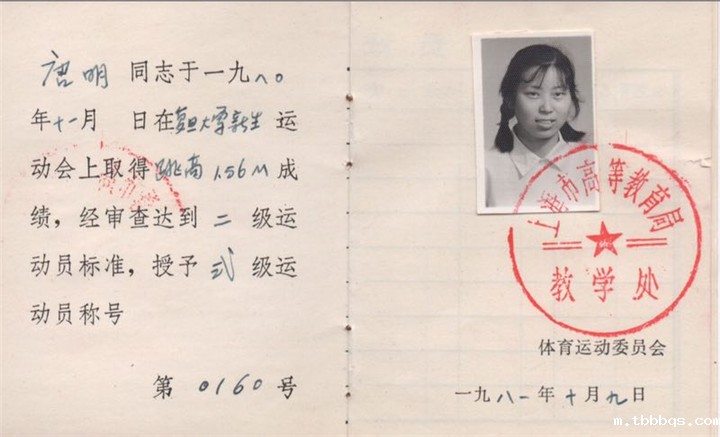 唐明 同志于一九八〇
年十一月 日在复旦大学新生 运
动会上取得 跳高1.56M 成
绩，经审查达到 二 级运
动员标准，授予 弍 级运
动员称号
第 0160 号
上海市高等教育局
教学处
体育运动委员会
一九八一年十月九日
m.tbbbqs.com